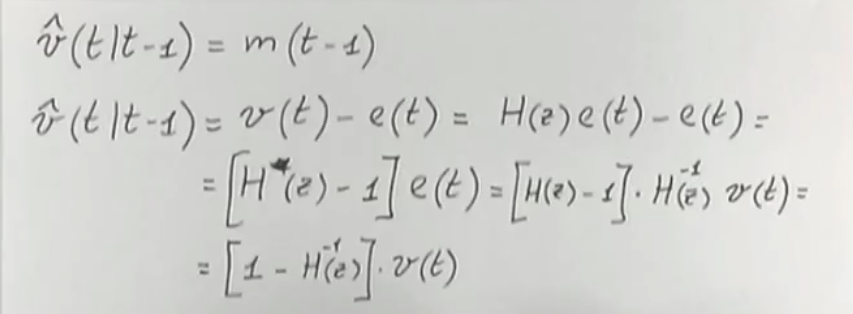 v̂(t|t-1) = m(t-1)
v̂(t|t-1) = v(t) - e(t) = H(z)e(t) - e(t) =
= [H(z) - 1] e(t) = [H(z) - 1] · H⁻¹(z) v(t) =
= [1 - H⁻¹(z)] · v(t)